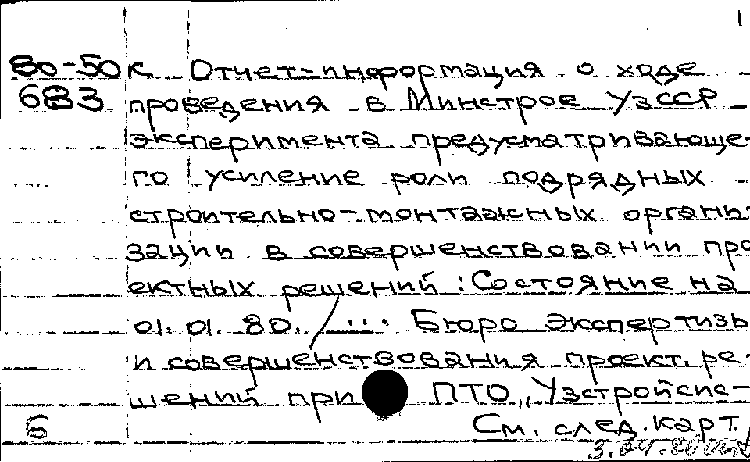 1
80-50к Отчет-информация о ходе
683 проведения в Минстрое УзССР
эксперимента предусматривающе-
го усиление роли подрядных
строительно-монтажных органи-
зации в совершенствовании про
ектных решений: Состояние на
01.01.80. / ... Бюро экспертизы
и совершенствования проект. ре-
шений при ПТО „Узстройспе-
Б См. след. карт.